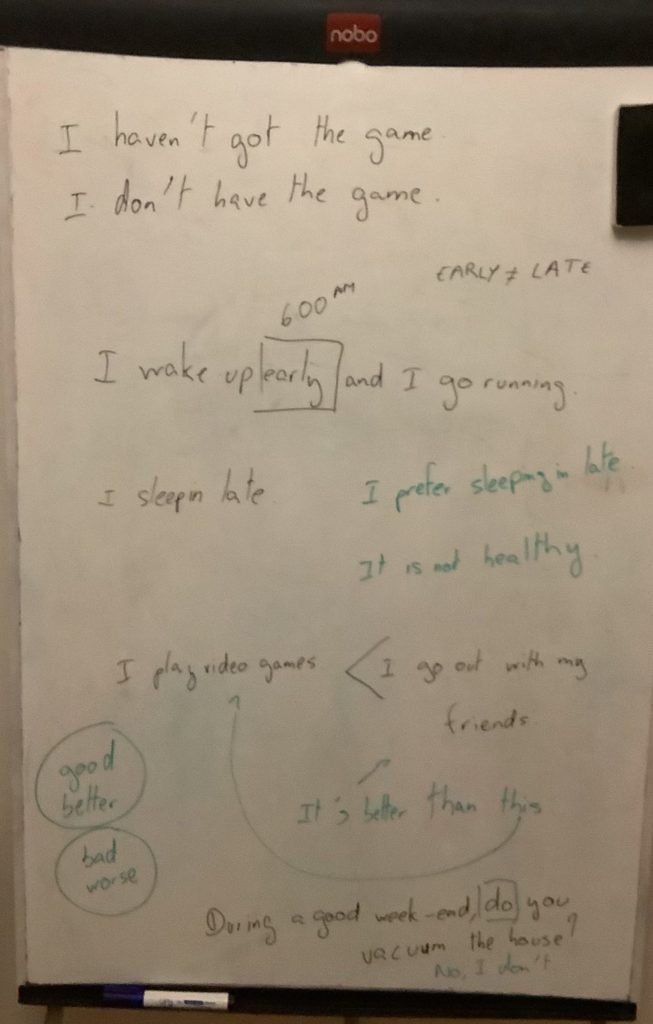 nobo
I haven't got the game.
I don't have the game.
EARLY ≠ LATE
600 AM
I wake up early and I go running.
I sleep in late
I prefer sleeping in late.
It is not healthy.
I play video games < I go out with my
friends
good
better
It's better than this
bad
worse
During a good week-end, do you
vacuum the house?
No, I don't